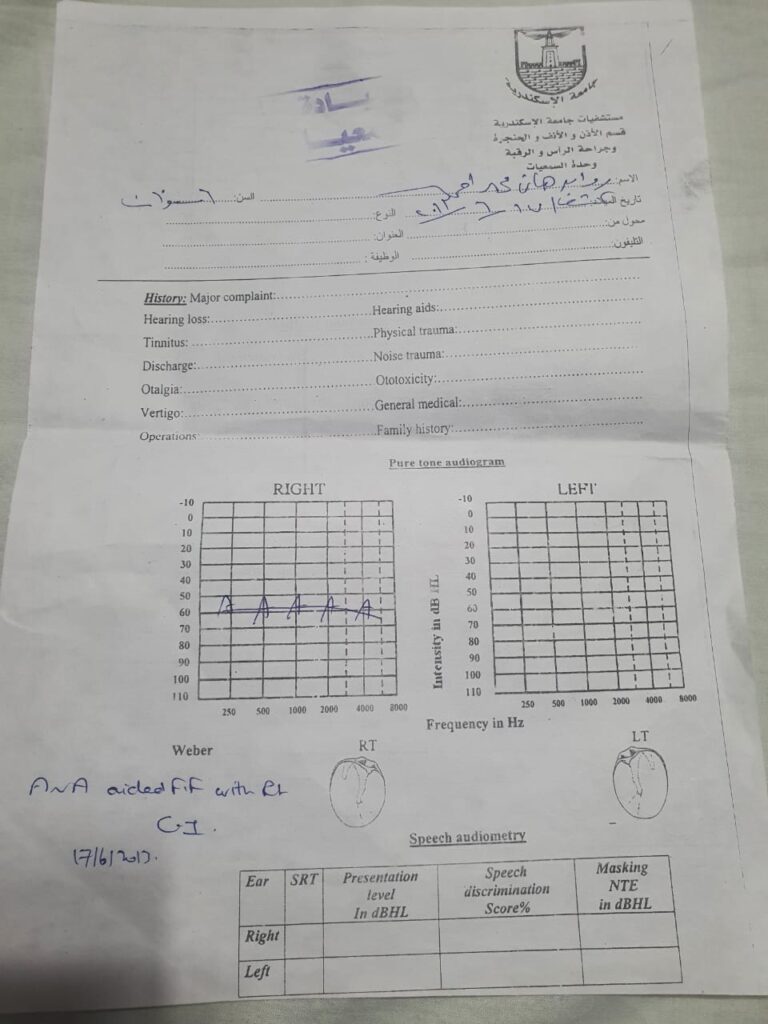 جامعة الإسكندرية
مستشفيات جامعة الإسكندرية
قسم الأذن و الأنف و الحنجرة
وجراحة الرأس و الرقبة
وحدة السمعيات
الاسم: هانى محمد السن: ٦ سنوات
تاريخ النوع:
محول من: العنوان:
التليفون: الوظيفة:
History: Major complaint:
Hearing loss: Hearing aids:
Tinnitus: Physical trauma:
Discharge: Noise trauma:
Otalgia: Ototoxicity:
Vertigo: General medical:
Operations: Family history:
Pure tone audiogram
RIGHT LEFT
-10 -10
0 0
10 10
20 20
30 30
40 40
50 A A A A A 50
60 60
70 70
80 80
90 90
100 100
110 110
Intensity in dB HL
250 500 1000 2000 4000 8000 250 500 1000 2000 4000 8000
Frequency in Hz
Weber RT LT
A~A aided FF with Rt
C.I.
17/6/2013.
Speech audiometry
Ear SRT Presentation level In dBHL Speech discrimination Score% Masking NTE in dBHL
Right
Left